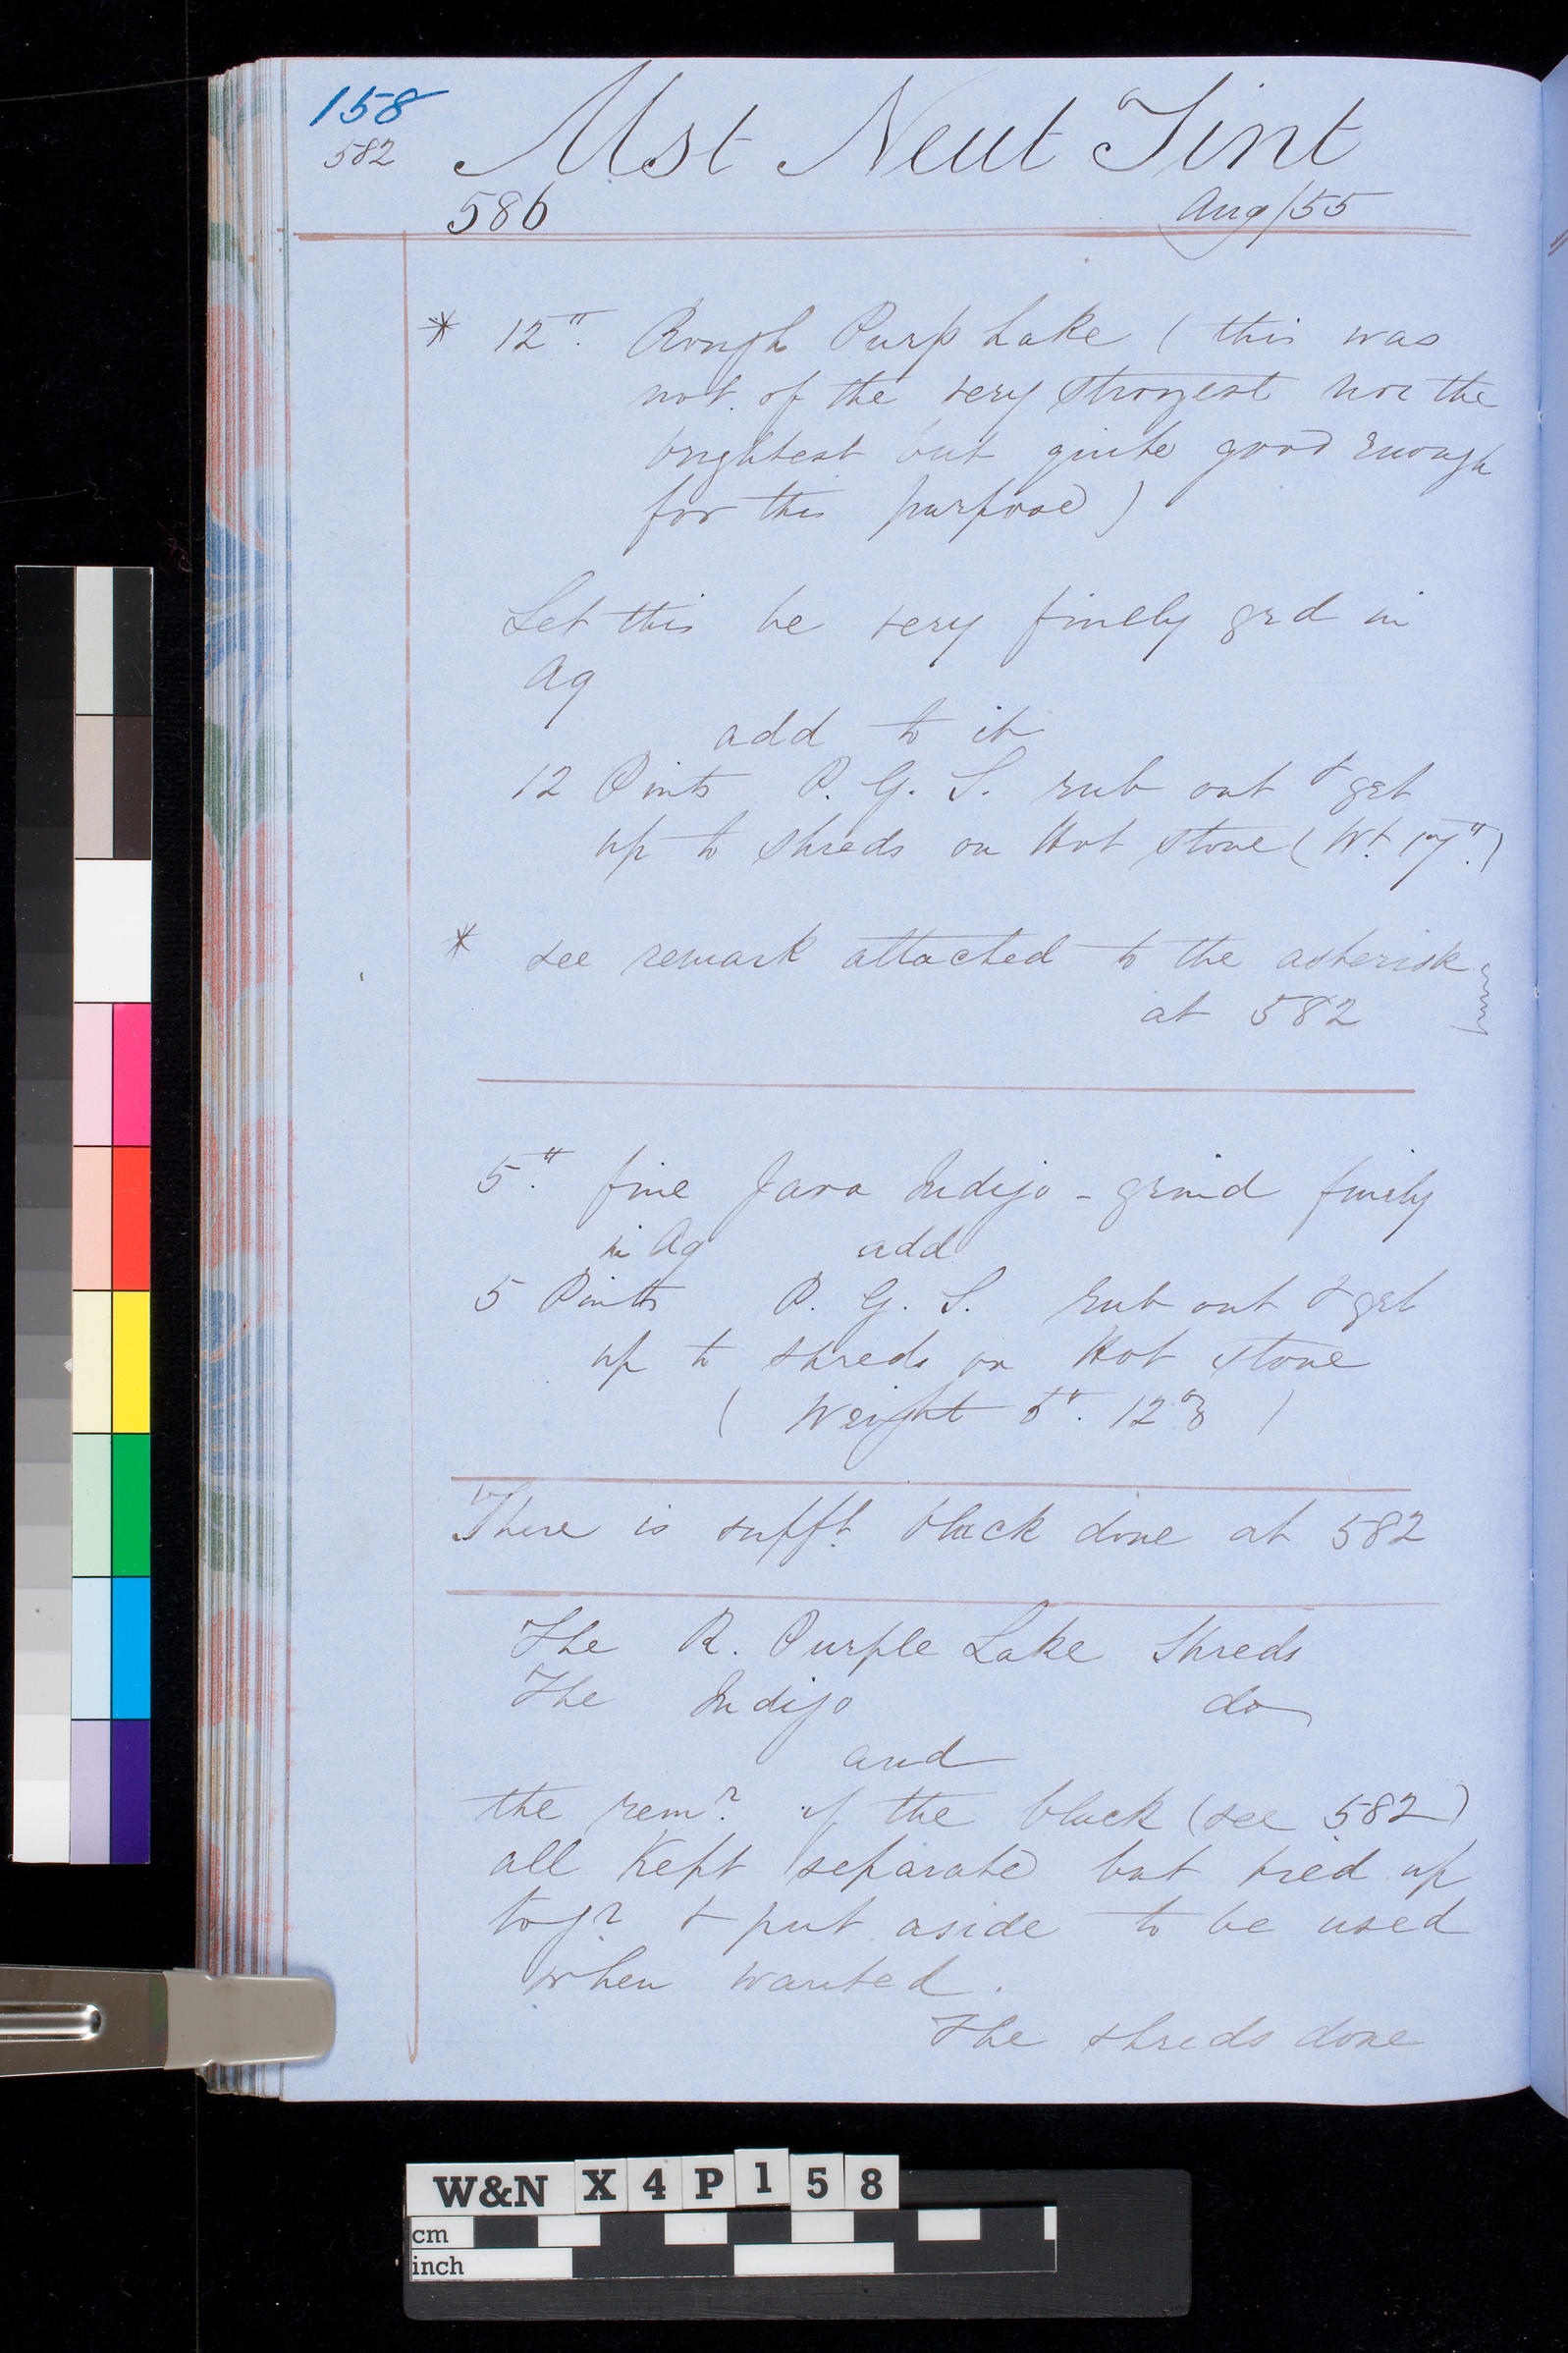 158
582
Mst Neut Tint
586
Aug/55
* 12". Rough Purp Lake ( this was
not of the very strongest nor the
brightest but quite good enough
for this purpose )
Let this be very finely grd in
Aq
add to it
12 Pints P. G. S. rub out & get
up to shreds on Hot Stone ( Wt. 17". )
* see remark attached to the asterisk
at 582
5". fine Java Indigo - grind finely
in Aq add
5 Pints P. G. S. rub out & get
up to shreds on Hot Stone
( Weight 5". 12 oz )
There is sufft. black done at 582
The R. Purple Lake Shreds
The Indigo do
and
the remr. of the black (see 582)
all Kept separate but tied up
togr. & put aside to be used
when wanted.
The shreds done
W&N X 4 P 1 5 8
cm
inch